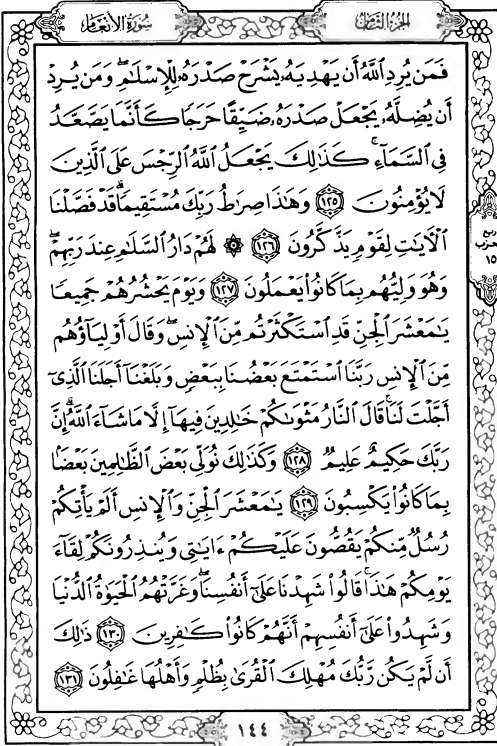 سُورَةُ الأَنْعَامِ
الجُزْءُ الثَّامِنُ
فَمَن يُرِدِ ٱللَّهُ أَن يَهْدِيَهُۥ يَشْرَحْ صَدْرَهُۥ لِلْإِسْلَٰمِۖ وَمَن يُرِدْ
أَن يُضِلَّهُۥ يَجْعَلْ صَدْرَهُۥ ضَيِّقًا حَرَجًا كَأَنَّمَا يَصَّعَّدُ
فِى ٱلسَّمَآءِۚ كَذَٰلِكَ يَجْعَلُ ٱللَّهُ ٱلرِّجْسَ عَلَى ٱلَّذِينَ
لَا يُؤْمِنُونَ ١٢٥ وَهَٰذَا صِرَٰطُ رَبِّكَ مُسْتَقِيمًاۗ قَدْ فَصَّلْنَا
ٱلْـَٔايَٰتِ لِقَوْمٍ يَذَّكَّرُونَ ١٢٦ ۞ لَهُمْ دَارُ ٱلسَّلَٰمِ عِندَ رَبِّهِمْۖ
وَهُوَ وَلِيُّهُم بِمَا كَانُوا۟ يَعْمَلُونَ ١٢٧ وَيَوْمَ يَحْشُرُهُمْ جَمِيعًا
يَٰمَعْشَرَ ٱلْجِنِّ قَدِ ٱسْتَكْثَرْتُم مِّنَ ٱلْإِنسِۖ وَقَالَ أَوْلِيَآؤُهُم
مِّنَ ٱلْإِنسِ رَبَّنَا ٱسْتَمْتَعَ بَعْضُنَا بِبَعْضٍ وَبَلَغْنَآ أَجَلَنَا ٱلَّذِىٓ
أَجَّلْتَ لَنَاۚ قَالَ ٱلنَّارُ مَثْوَىٰكُمْ خَٰلِدِينَ فِيهَآ إِلَّا مَا شَآءَ ٱللَّهُۗ إِنَّ
رَبَّكَ حَكِيمٌ عَلِيمٌ ١٢٨ وَكَذَٰلِكَ نُوَلِّى بَعْضَ ٱلظَّٰلِمِينَ بَعْضًۢا
بِمَا كَانُوا۟ يَكْسِبُونَ ١٢٩ يَٰمَعْشَرَ ٱلْجِنِّ وَٱلْإِنسِ أَلَمْ يَأْتِكُمْ
رُسُلٌ مِّنكُمْ يَقُصُّونَ عَلَيْكُمْ ءَايَٰتِى وَيُنذِرُونَكُمْ لِقَآءَ
يَوْمِكُمْ هَٰذَاۚ قَالُوا۟ شَهِدْنَا عَلَىٰٓ أَنفُسِنَاۖ وَغَرَّتْهُمُ ٱلْحَيَوٰةُ ٱلدُّنْيَا
وَشَهِدُوا۟ عَلَىٰٓ أَنفُسِهِمْ أَنَّهُمْ كَانُوا۟ كَٰفِرِينَ ١٣٠ ذَٰلِكَ
أَن لَّمْ يَكُن رَّبُّكَ مُهْلِكَ ٱلْقُرَىٰ بِظُلْمٍ وَأَهْلُهَا غَٰفِلُونَ ١٣١
ربع
حزب
١٥
١٤٤